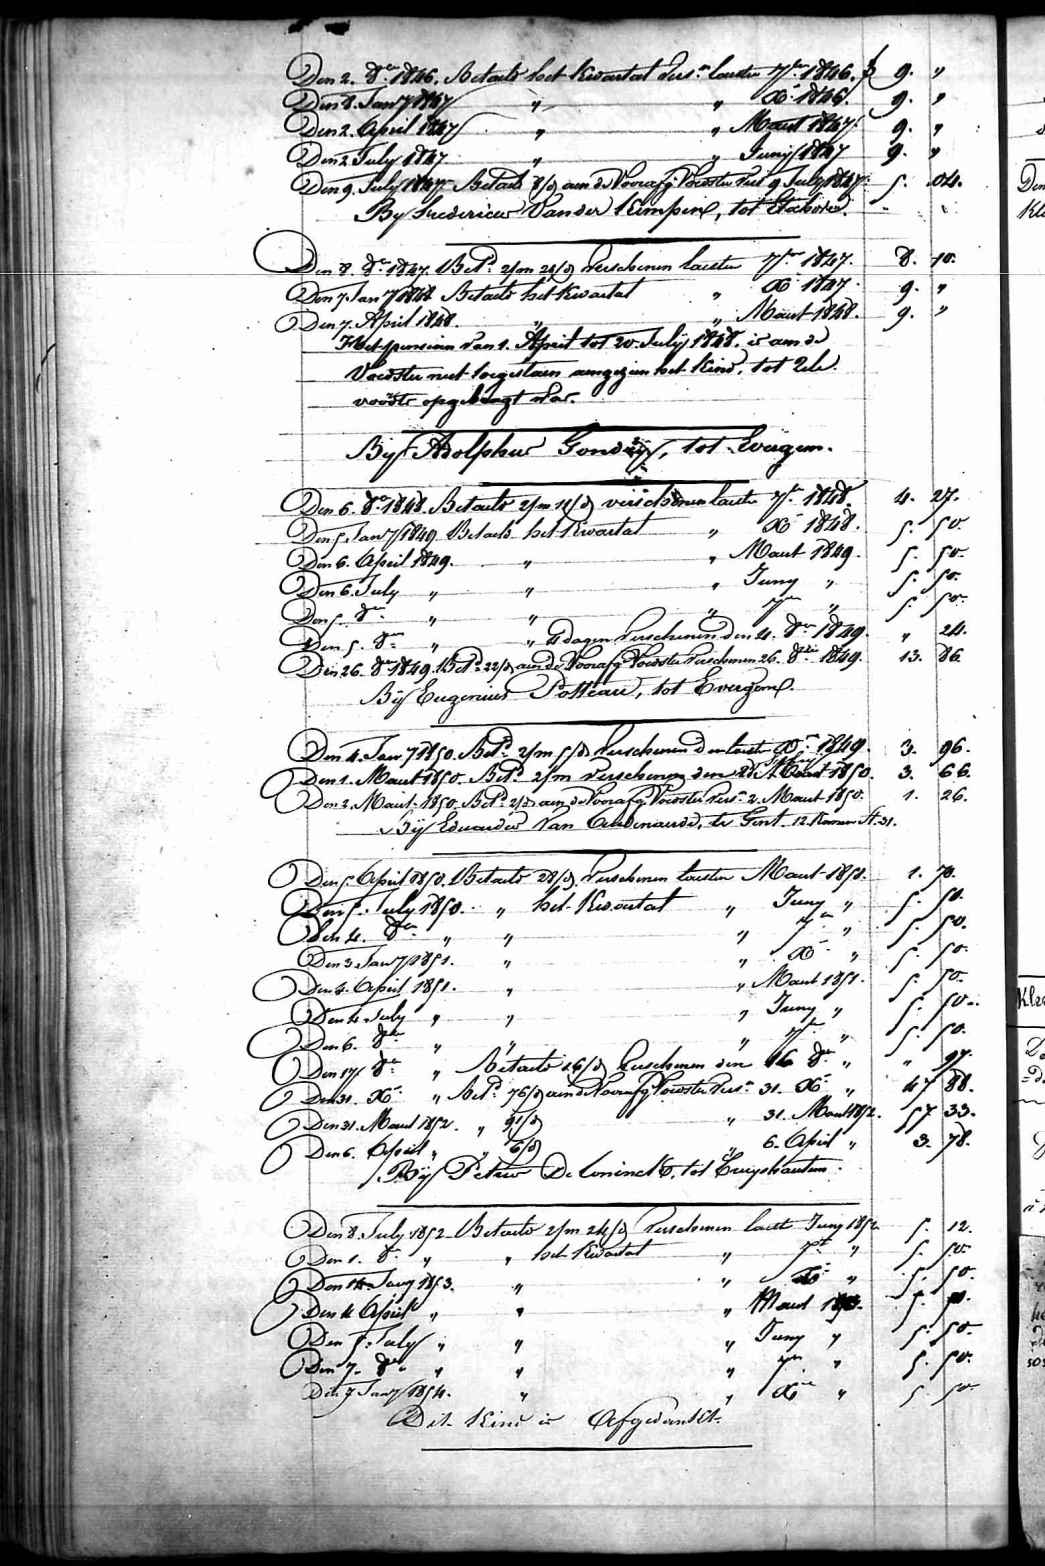 Den 2. 8er 1846. Betaelt het Kwartael vers.n laesten 7ber 1846. f 9. "
Den 8. Jan.y 1847 " " Xr 1846. 9. "
Den 2. April 1847 " " Maert 1847. 9. "
Den 2 July 1847 " " Juny 1847 9. "
Den 9. July 1847 Betaelt 8/d aen de Voorafg. Voedster vers. 9 July 1847. 5. 04.
By Fredericus Vander Kimpen, tot
Den 8. 8er 1847. Bet.d 2/m 21/d verschenen laesten 7ber 1847. 8. 10.
Den 7. Jan.y 1848 Betaelt het Kwartael " Xr 1847. 9. "
Den 7. April 1848. " " Maert 1848. 9. "
Het pensioen van 1. April tot 20. July 1848. is aen de
Voedster niet toegestaen aengezien het Kind, tot
opgebragt was.
Bij Adolphus Gondry, tot Evergem.
Den 6. 8er 1848. Betaelt 2/m 11/d verschenen laesten 7ber 1848. 4. 27.
Den 5. Jan.y 1849 Betaelt het Kwartael " Xr 1848. 5. 50.
Den 6. April 1849. " " Maert 1849. 5. 50.
Den 6. July " " " Juny " 5. 50.
Den 5. 8er " " " 7ber " 5. 50.
Den 5. 8er " " 4 dagen verschenen den 4. 8er 1849. " 24.
Den 26. 8er 1849. Bet.d 22/d aen de Voorafg. Voedster verschenen 26. 8ber 1849. 13. 86.
Bij Eugenius Potteau, tot Evergem.
Den 4. Jan.y 1850. Bet.d 2/m 5/d verschenen den laesten Xr 1849. 3. 96.
Den 1. Maert 1850. Bet.d 2/m verschenen den 28 Maert 1850. 3. 66.
Den 2. Maert 1850. Bet.d 2/d aen de Voorafg. Voedster vers.n 2. Maert 1850. 1. 26.
Bij Eduardus Van Audenaerde, te Gent. 12. Kamer St. 31.
Den 5. April 1850. Betaelt 28/d verschenen laesten Maert 1850. 1. 70.
Den 5. July 1850. " het Kwartael " Juny " 5. 50.
Den 4. 8er " " " 7er " 5. 50.
Den 3. Jan.y 1851. " " Xr " 5. 50.
Den 4. April 1851. " " Maert 1851. 5. 50.
Den 4. July " " " Juny " 5. 50.
Den 6. 8ber " " " 7ber " 5. 50.
Den 17 8er " Betaelt 16/d verschenen den 16 8er " " 97.
Den 31. Xr " Bet.d 76/d aen de Voorafg. Voedster vers.n 31. Xr " 47 88.
Den 31. Maert 1852. " 91/d " 31. Maert 1852. 57 33.
Den 6. April " " 6/d " 6. April " 3. 78.
Bij Petrus De Coninck, tot Cruyshautem.
Den 8. July 1852 Betaelt 2/m 24/d verschenen laest Juny 1852 5. 12.
Den 1. 8er " " het Kwartael " 7ber " 5. 50
Den 14 Jan.y 1853. " " Xr " 5. 50.
Den 4 April " " " Maert 1853. 5. 50.
Den 5. July " " " Juny " 5. 50.
Den 7. 8er " " " 7er " 5. 50.
Den 7 Jan.y 1854. " " Xre " 5. 50.
Dit Kind is Afgedankt.